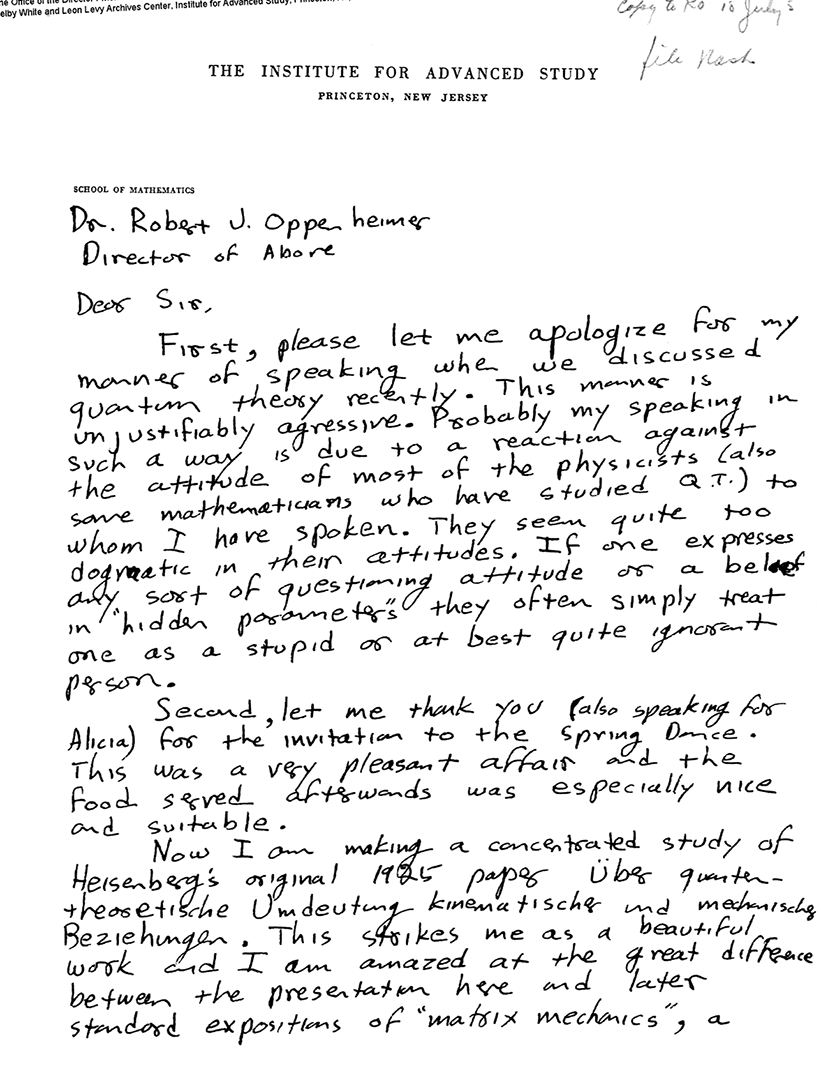 he Office of the Director
elby White and Leon Levy Archives Center, Institute for Advanced Study, Princeton,
Copy to RO 10 July 5
file Nash
THE INSTITUTE FOR ADVANCED STUDY
PRINCETON, NEW JERSEY
SCHOOL OF MATHEMATICS
Dr. Robert J. Oppenheimer
Director of Above
Dear Sir,
First, please let me apologize for my
manner of speaking whe we discussed
quantum theory recently. This manner is
unjustifiably agressive. Probably my speaking in
such a way is due to a reaction against
the attitude of most of the physicists (also
some mathematicians who have studied Q.T.) to
whom I have spoken. They seem quite too
dogmatic in their attitudes. If one expresses
any sort of questioning attitude or a belief
in "hidden parameters" they often simply treat
one as a stupid or at best quite ignorant
person.
Second, let me thank you (also speaking for
Alicia) for the invitation to the Spring Dance.
This was a very pleasant affair and the
food served afterwards was especially nice
and suitable.
Now I am making a concentrated study of
Heisenberg's original 1925 paper Über quanten-
theoretische Umdeutung kinematischer und mechanischer
Beziehungen. This strikes me as a beautiful
work and I am amazed at the great difference
between the presentation here and later
standard expositions of "matrix mechanics", a